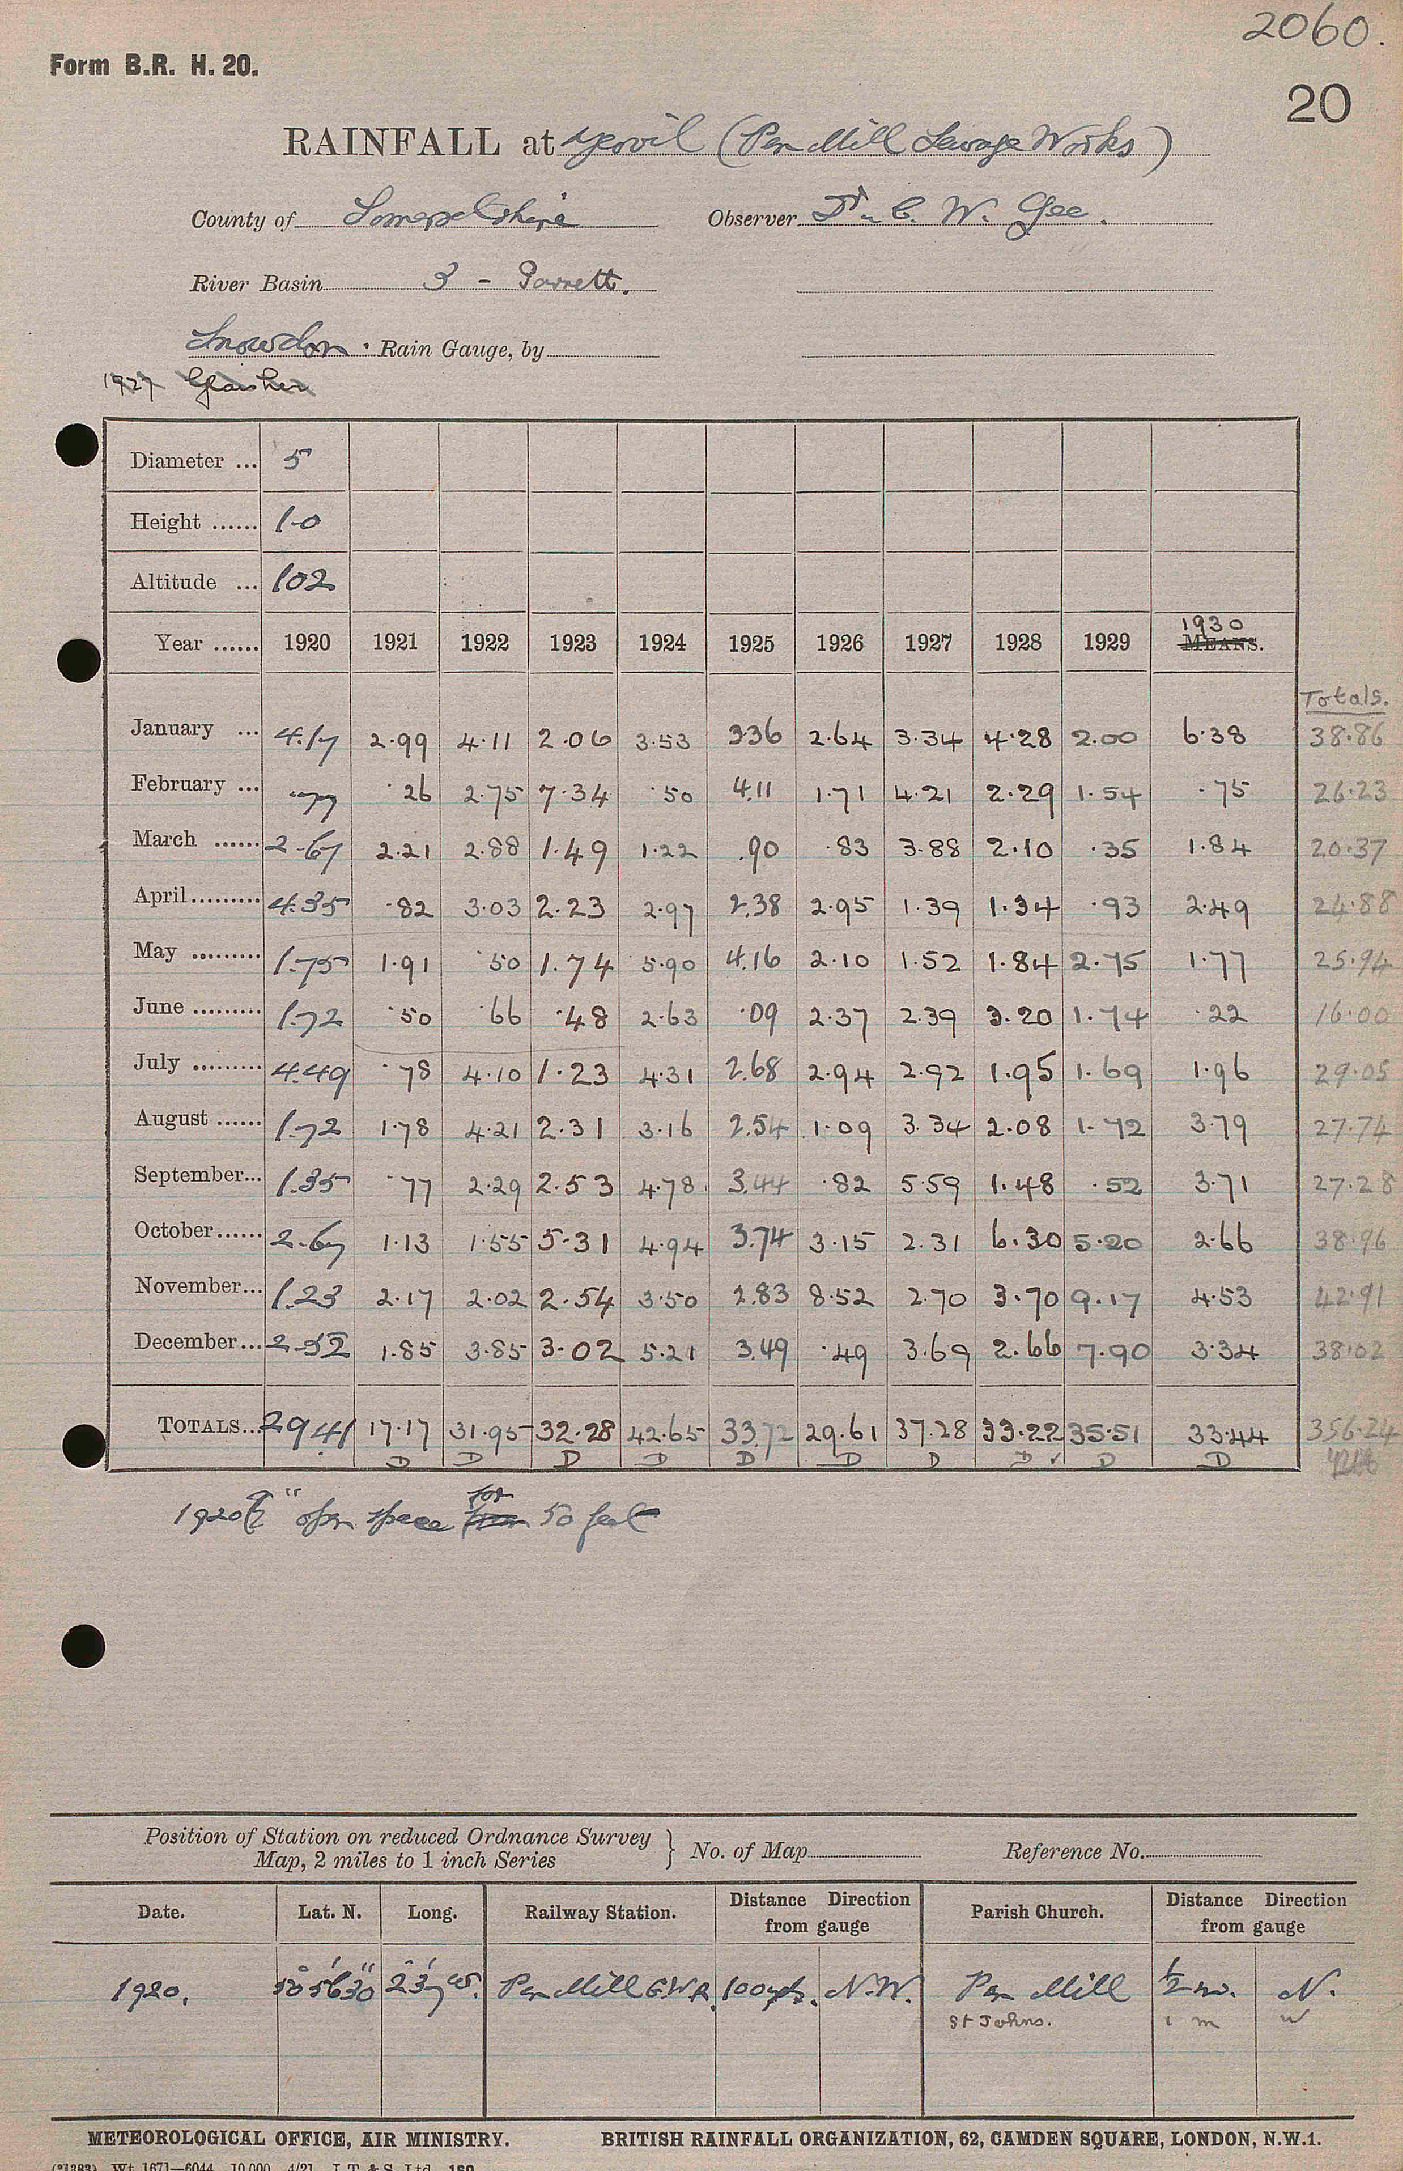 2060.
Form B.R. H. 20.
20
RAINFALL at Yeovil (Pen Mill Sewage Works)
County of Somersetshire Observer Dr. C. W. Gee.
River Basin 3 - Parrett.
Snowdon. Rain Gauge, by
1927 Glaisher
Diameter ... 5
Height ...... 1-0
Altitude ... 102
Year ...... 1920 1921 1922 1923 1924 1925 1926 1927 1928 1929 1930 MEANS.
Totals.
January ... 4.17 2.99 4.11 2.06 3.53 3.36 2.64 3.34 4.28 2.00 6.38 38.86
February ... .77 .26 2.75 7.34 .50 4.11 1.71 4.21 2.29 1.54 .75 26.23
March ...... 2.67 2.21 2.88 1.49 1.22 .90 .83 3.88 2.10 .35 1.84 20.37
April ......... 4.35 .82 3.03 2.23 2.97 2.38 2.95 1.39 1.34 .93 2.49 24.88
May ......... 1.75 1.91 .50 1.74 5.90 4.16 2.10 1.52 1.84 2.75 1.77 25.94
June ......... 1.72 .50 .66 .48 2.63 .09 2.37 2.39 3.20 1.74 .22 16.00
July ......... 4.49 .78 4.10 1.23 4.31 2.68 2.94 2.92 1.95 1.69 1.96 29.05
August ...... 1.72 1.78 4.21 2.31 3.16 2.54 1.09 3.34 2.08 1.72 3.79 27.74
September... 1.35 .77 2.29 2.53 4.78 3.44 .82 5.59 1.48 .52 3.71 27.28
October...... 2.67 1.13 1.55 5.31 4.94 3.74 3.15 2.31 6.30 5.20 2.66 38.96
November... 1.23 2.17 2.02 2.54 3.50 2.83 8.52 2.70 3.70 9.17 4.53 42.91
December... 2.52 1.85 3.85 3.02 5.21 3.49 .49 3.69 2.66 7.90 3.34 38.02
TOTALS... 29.41 17.17 31.95 32.28 42.65 33.72 29.61 37.28 33.22 35.51 33.44 356.24
D D D D D D D D ✓ D D
1920 open space for from 50 feet
Position of Station on reduced Ordnance Survey Map, 2 miles to 1 inch Series } No. of Map Reference No.
Date. Lat. N. Long. Railway Station. Distance Direction from gauge Parish Church. Distance Direction from gauge
1920. 50° 56' 30" 2° 37' W. Pen Mill G.W.R. 100 yds. N.W. Pen Mill ½ m. N.
St Johns. 1 m W
METEOROLOGICAL OFFICE, AIR MINISTRY. BRITISH RAINFALL ORGANIZATION, 62, CAMDEN SQUARE, LONDON, N.W.1.
(*1383) Wt. 1671—6044 10,000 4/21 J. T. & S. Ltd. 159